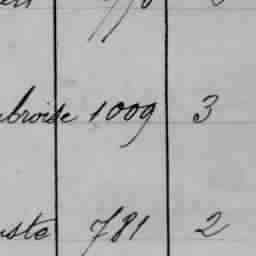 broise 1009 3
ste 781 2